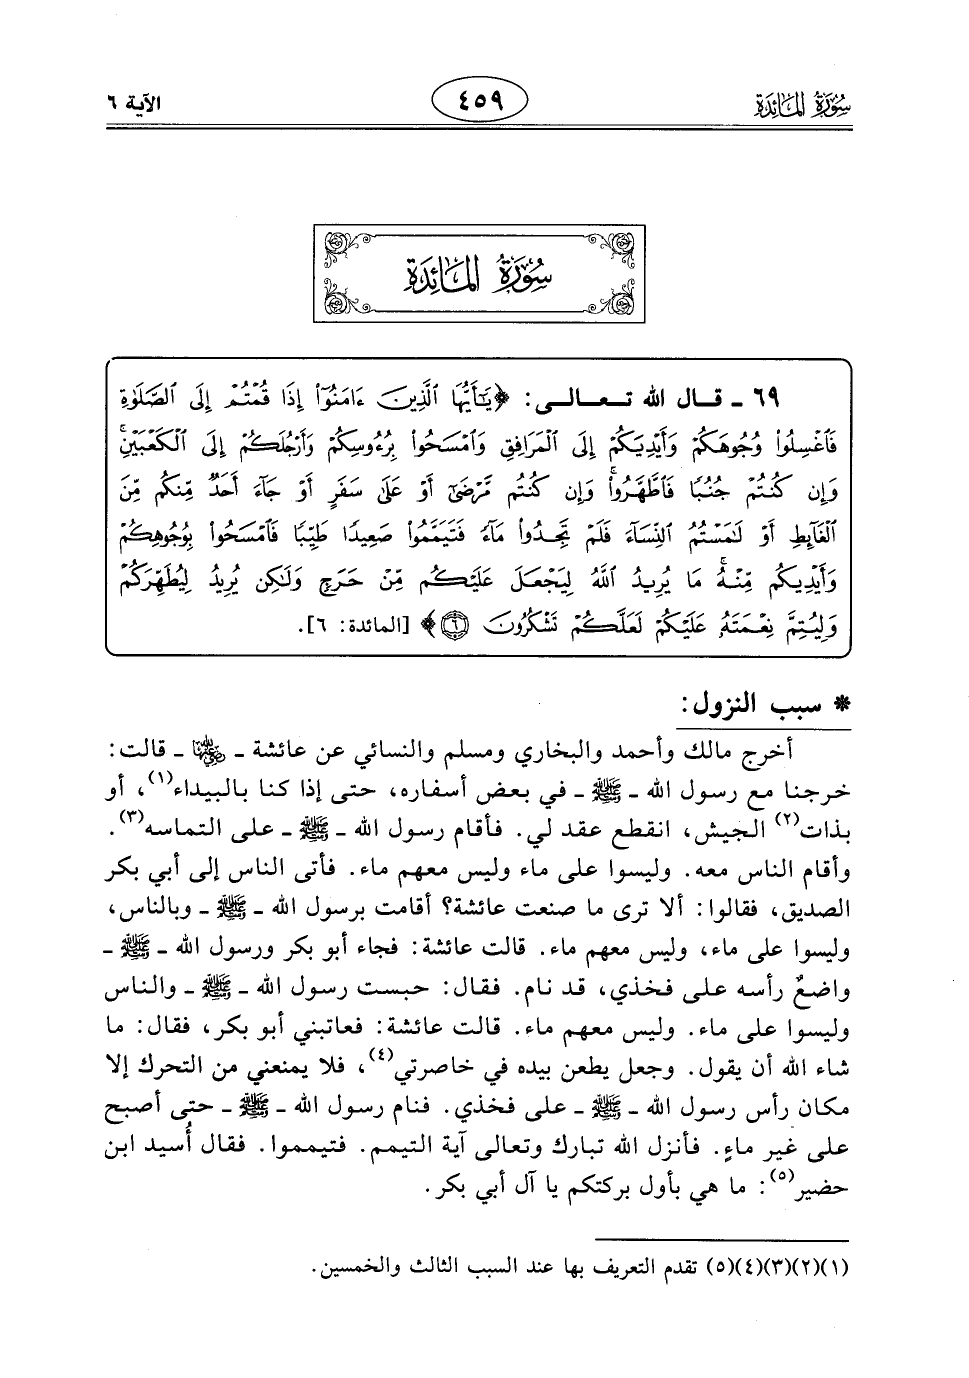 سُورَةُ المَائِدَة
٤٥٩
الآية ٦
سُورَةُ المَائِدَة
٦٩ ـ قـال الله تـعـالـى: ﴿يَٰٓأَيُّهَا ٱلَّذِينَ ءَامَنُوٓا۟ إِذَا قُمْتُمْ إِلَى ٱلصَّلَوٰةِ
فَٱغْسِلُوا۟ وُجُوهَكُمْ وَأَيْدِيَكُمْ إِلَى ٱلْمَرَافِقِ وَٱمْسَحُوا۟ بِرُءُوسِكُمْ وَأَرْجُلَكُمْ إِلَى ٱلْكَعْبَيْنِ ۚ
وَإِن كُنتُمْ جُنُبًا فَٱطَّهَّرُوا۟ ۚ وَإِن كُنتُم مَّرْضَىٰٓ أَوْ عَلَىٰ سَفَرٍ أَوْ جَآءَ أَحَدٌ مِّنكُم مِّنَ
ٱلْغَآئِطِ أَوْ لَٰمَسْتُمُ ٱلنِّسَآءَ فَلَمْ تَجِدُوا۟ مَآءً فَتَيَمَّمُوا۟ صَعِيدًا طَيِّبًا فَٱمْسَحُوا۟ بِوُجُوهِكُمْ
وَأَيْدِيكُم مِّنْهُ ۚ مَا يُرِيدُ ٱللَّهُ لِيَجْعَلَ عَلَيْكُم مِّنْ حَرَجٍ وَلَٰكِن يُرِيدُ لِيُطَهِّرَكُمْ
وَلِيُتِمَّ نِعْمَتَهُۥ عَلَيْكُمْ لَعَلَّكُمْ تَشْكُرُونَ ٦﴾ [المائدة: ٦].
* سبب النزول:
أخرج مالك وأحمد والبخاري ومسلم والنسائي عن عائشة ـ رضي الله عنها ـ قالت:
خرجنا مع رسول الله ـ ﷺ ـ في بعض أسفاره، حتى إذا كنا بالبيداء(١)، أو
بذات(٢) الجيش، انقطع عقد لي. فأقام رسول الله ـ ﷺ ـ على التماسه(٣).
وأقام الناس معه. وليسوا على ماء وليس معهم ماء. فأتى الناس إلى أبي بكر
الصديق، فقالوا: ألا ترى ما صنعت عائشة؟ أقامت برسول الله ـ ﷺ ـ وبالناس،
وليسوا على ماء، وليس معهم ماء. قالت عائشة: فجاء أبو بكر ورسول الله ـ ﷺ ـ
واضعٌ رأسه على فخذي، قد نام. فقال: حبست رسول الله ـ ﷺ ـ والناس
وليسوا على ماء. وليس معهم ماء. قالت عائشة: فعاتبني أبو بكر، فقال: ما
شاء الله أن يقول. وجعل يطعن بيده في خاصرتي(٤)، فلا يمنعني من التحرك إلا
مكان رأس رسول الله ـ ﷺ ـ على فخذي. فنام رسول الله ـ ﷺ ـ حتى أصبح
على غير ماءٍ. فأنزل الله تبارك وتعالى آية التيمم. فتيمموا. فقال أُسيد ابن
حضير(٥): ما هي بأول بركتكم يا آل أبي بكر.
(١)(٢)(٣)(٤)(٥) تقدم التعريف بها عند السبب الثالث والخمسين.